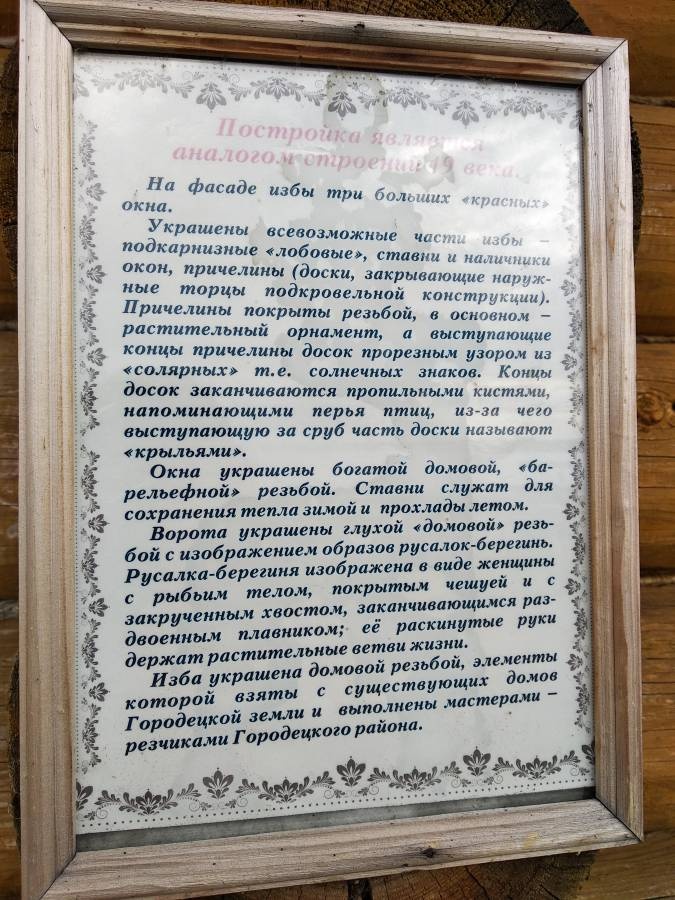 Постройка является
аналогом строений 19 века.
На фасаде избы три больших «красных»
окна.
Украшены всевозможные части избы –
подкарнизные «лобовые», ставни и наличники
окон, причелины (доски, закрывающие наруж-
ные торцы подкровельной конструкции).
Причелины покрыты резьбой, в основном –
растительный орнамент, а выступающие
концы причелины досок прорезным узором из
«солярных» т.е. солнечных знаков. Концы
досок заканчиваются пропильными кистями,
напоминающими перья птиц, из-за чего
выступающую за сруб часть доски называют
«крыльями».
Окна украшены богатой домовой, «ба-
рельефной» резьбой. Ставни служат для
сохранения тепла зимой и прохлады летом.
Ворота украшены глухой «домовой» резь-
бой с изображением образов русалок-берегинь.
Русалка-берегиня изображена в виде женщины
с рыбьим телом, покрытым чешуей и с
закрученным хвостом, заканчивающимся раз-
двоенным плавником; её раскинутые руки
держат растительные ветви жизни.
Изба украшена домовой резьбой, элементы
которой взяты с существующих домов
Городецкой земли и выполнены мастерами –
резчиками Городецкого района.